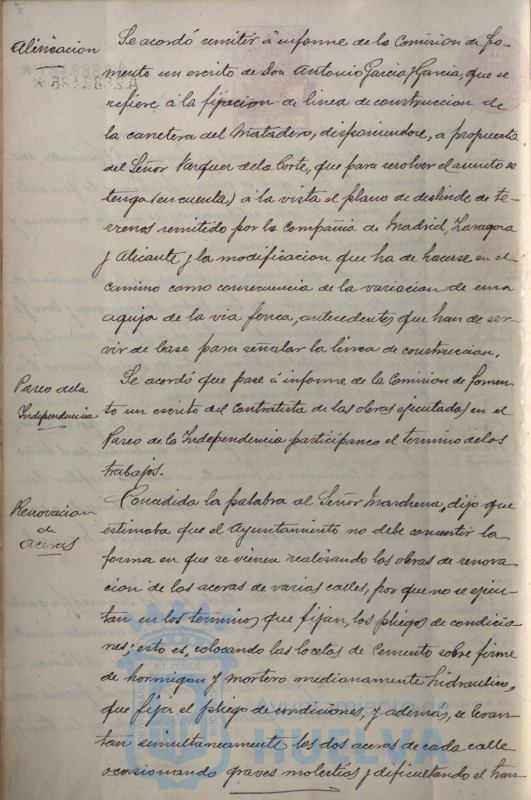 Alineacion
Se acordó remitir á informe de la Comision de Fo-
mento un escrito de Don Antonio Garcia y Garcia, que se
refiere á la fijacion de linea de construccion de
la carretera del Matadero, disponiendose, a propuesta
del Señor Vazquez de la Corte, que para resolver el asunto se
tenga (en cuenta) á la vista el plano de deslinde de te-
rrenos remitido por la Compañia de Madrid, Zaragoza
y Alicante y la modificacion que ha de hacerse en el
camino como consecuencia de la variacion de una
aguja de la via ferrea, antecedentes que han de ser-
vir de base para señalar la linea de construccion.
Paseo de la
Independencia
Se acordó que pase á informe de la Comision de Fomen-
to un escrito del contratista de las obras ejecutadas en el
Paseo de la Independencia participando el termino de los
trabajos.
Renovacion
de
aceras
Concedida la palabra al Señor Marchena, dijo que
estimaba que el Ayuntamiento no debe consentir la
forma en que se vienen realizando las obras de renova-
cion de las aceras de varias calles, por que no se ejecu-
tan en los terminos que fijan los pliegos de condicio-
nes; esto es, colocando las locetas de cemento sobre firme
de hormigon y mortero medianamente hidraulico,
que fija el pliego de condiciones, y además, se levan-
tan simultaneamente las dos aceras de cada calle
ocasionando graves molestias y dificultando el tran-
HUELVA